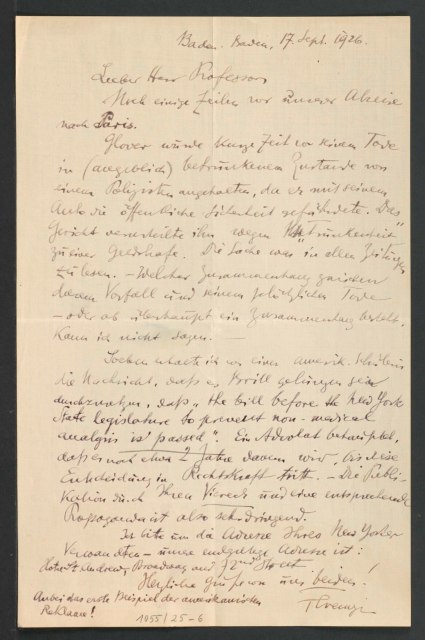 Baden-Baden, 17. Sept. 1926.
Lieber Herr Professor
Noch einige Zeilen vor unserer Abreise
nach Paris.
Glover wurde kurze Zeit vor seinem Tode
in (angeblich) betrunkenem Zustande von
einem Polizisten angehalten, da er mit seinem
Auto die öffentliche Sicherheit gefährdete. Das
Gericht verurteilte ihn wegen Betrunkenheit
zu einer Geldstrafe. Die Sache war in allen Zeitungen
zu lesen. – Welcher Zusammenhang zwischen
diesem Vorfall und seinem plötzlichen Tode
– oder ob überhaupt ein Zusammenhang besteht,
kann ich nicht sagen. –
Soeben erhalte ich von einer amerik. Schülerin
die Nachricht, daß es Brill gelungen sei
durchzusetzen, daß "the bill before the New York
State legislature to prevent non-medical
analysis is passed". Ein Advokat behauptet,
daß es noch etwa 2 Jahre dauern wird, bis diese
Entscheidung in Rechtskraft tritt. – Die Publi-
kation durch Ihren Viereck und eine entsprechende
Propaganda ist also sehr dringend.
Ich bitte um die Adresse Ihres New Yorker
Verwandten – unsere endgültige Adresse ist:
Hotel St. Andrew, Broadway and 72nd Street!
Herzliche Grüße von uns beiden!
Ferenczi
Anbei das erste Beispiel der amerikanischen
Reklame!
1055/25-6